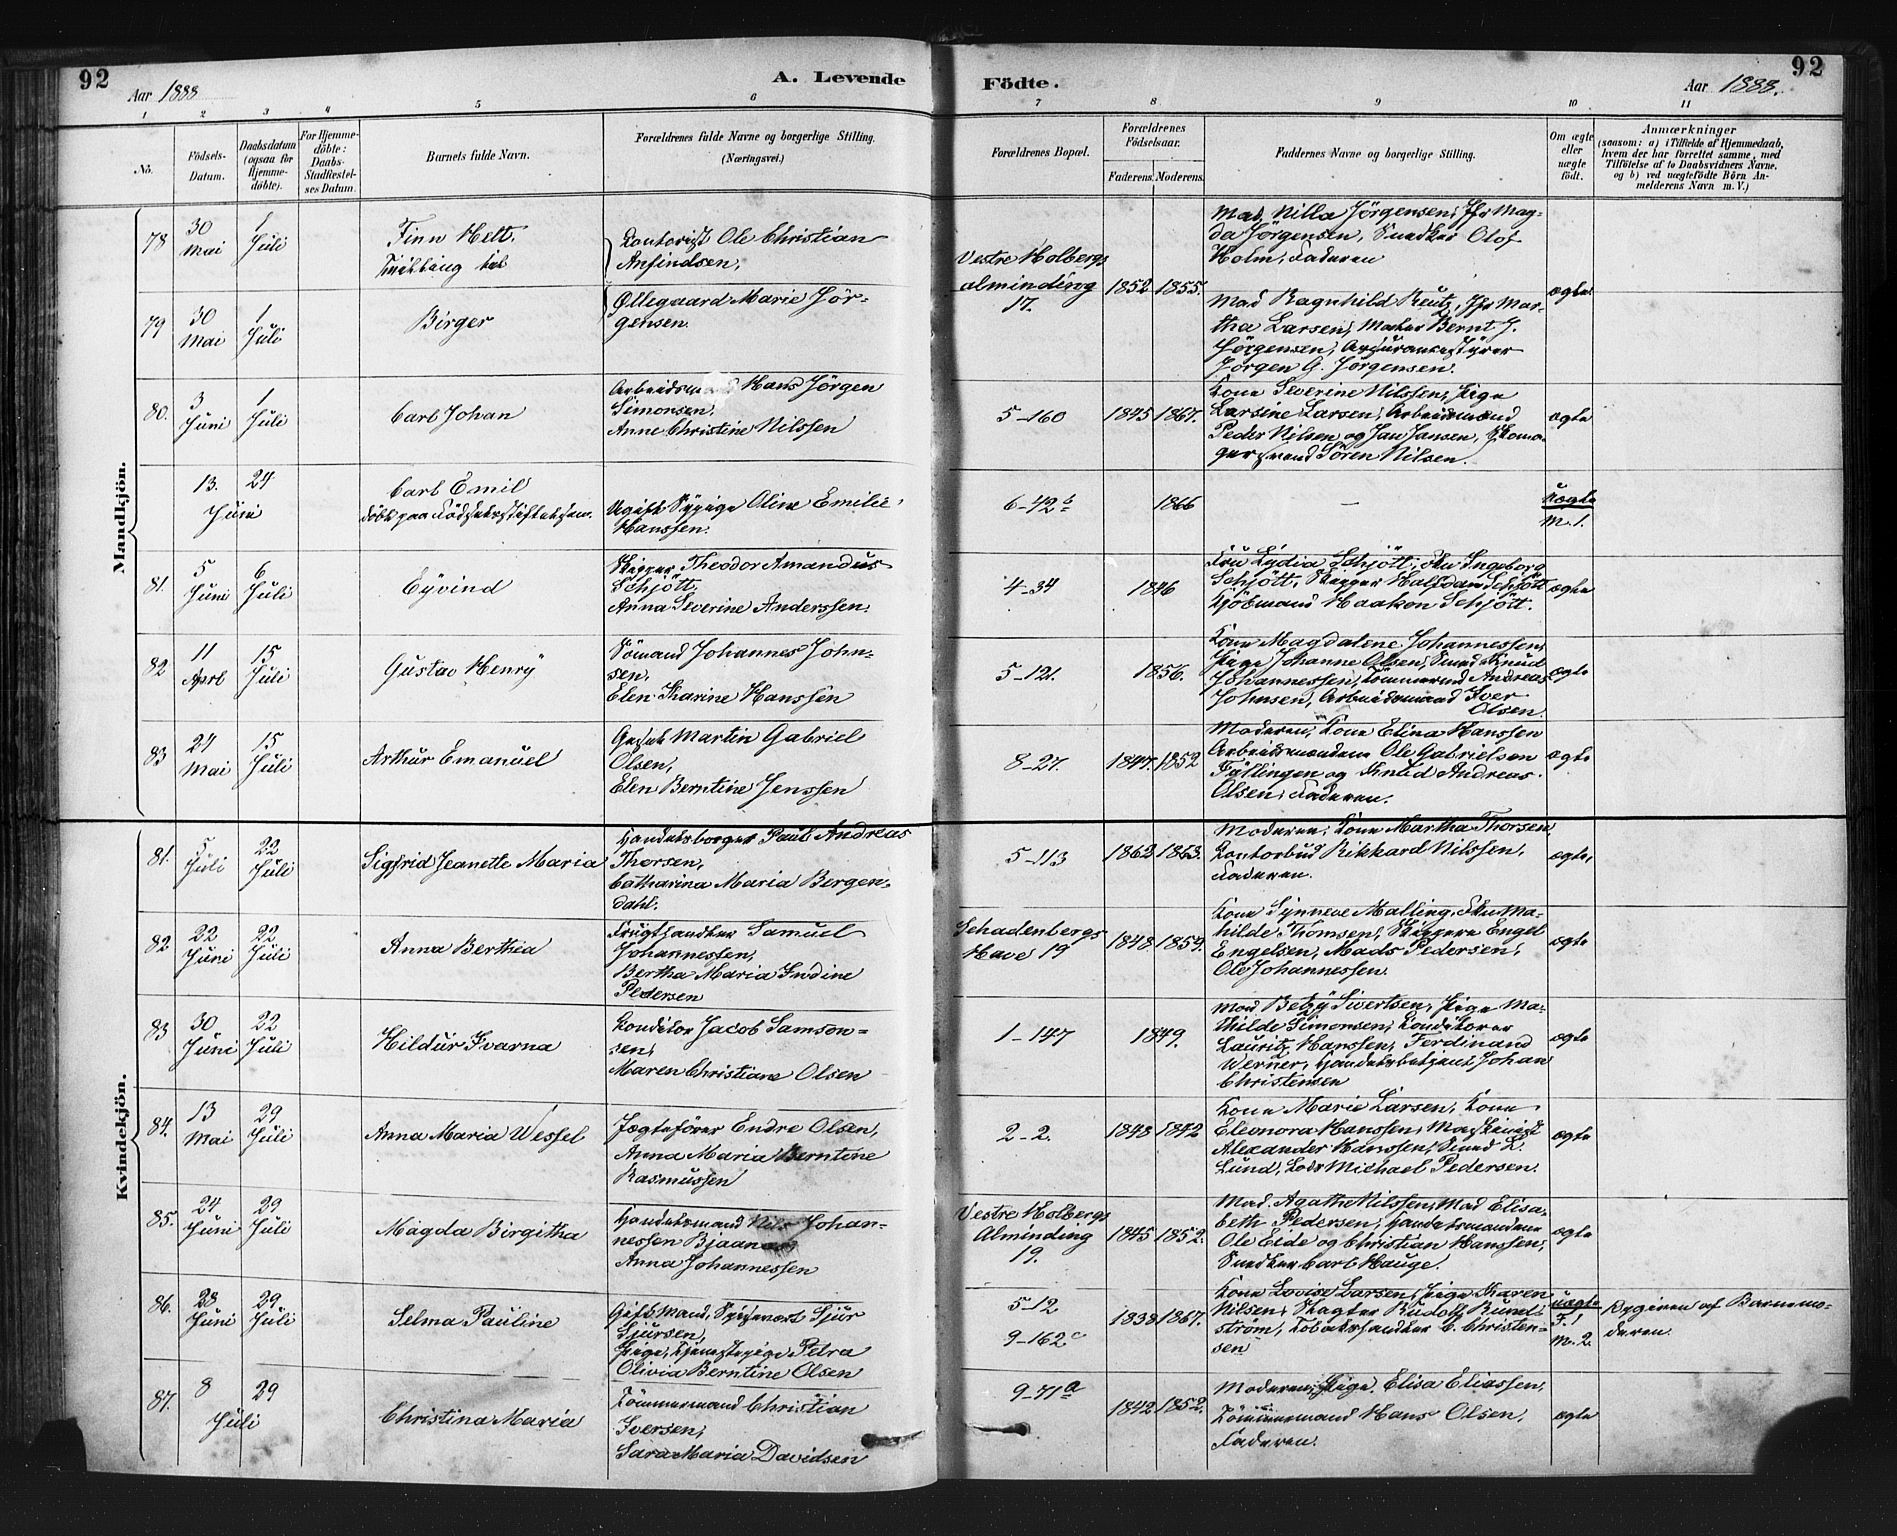 92
Aar 1888
A. Levende
Födte.
Aar 1888.
92
1 2 3 4 5 6 7 8 9 10 11
No.
Födsels-Datum.
Daabsdatum (ogsaa for Hjemme-döbte).
For Hjemme-döbte: Daabs-Stadfæstel-ses Datum.
Barnets fulde Navn.
Forældrenes fulde Navne og borgerlige Stilling.
(Næringsvei.)
Forældrenes Bopæl.
Forældrenes Födselsaar.
Faderens. Moderens.
Faddernes Navne og borgerlige Stilling.
Om ægte eller uægte födt.
Anmærkninger
(saasom: a) i Tilfælde af Hjemmedaab,
hvem der har forrettet samme, med
Tilföielse af to Daabsvidners Navne,
og b) ved uægtefödte Börn An-
melderens Navn m. V.)
Mandkjön.
78 30 Mai 1 Juli
Finn Helt.
Tvilling
Kontorist Ole Christian
Anfindsen,
Vestre Holbergs
alminding
17.
1852 1855.
Mad. Nilla Jörgensen, Jfr Mag-
da Jörgensen, Snedker Olof
Holm, Faderen
ægte
79 30 Mai 1 Juli
Birger
Öllegaard Marie Jör-
gensen.
Mad Ragnhild Reutz, Jfr Mar-
tha Larsen, Bernt J.
Jörgensen, Assurancestyrer
Jörgen G. Jörgensen.
80. 3 Juni 1 Juli
Carl Johan
Arbeidsmand Hans Jörgen
Simonsen,
Anne Christine Nilssen
5-160
1845 1867.
Kone Severine Nilssen, Pige
Larsine Larsen, Arbeidsmænd
Peder Nilsen og Jan Jansen, Skoma-
gersvend Sören Nilsen.
ægte
13. 24 Juni
Carl Emil
döbt paa Födselsstiftelsen.
Ugift Sypige Oline Emilie
Hanssen.
6-42 b
1866
—
Uægte
M. 1.
81. 5 Juni 6 Juli
Eyvind
Skipper Theodor Amandus
Schjött,
Anna Severine Anderssen.
4-34
1846
Fru Lydia Schjött, Fru Ingeborg
Schjött, Skipper Halfdan Schjött
Kjöbmand Haakon Schjött.
ægte
82 11 Aprl 15 Juli
Gustav Henry
Sömand Johannes John-
sen,
Elen Karine Hanssen
5-121.
1856.
Kone Magdalene Johannessen,
Pige Johanne Olsen, Smed Knud
Johannessen, Tömmermd Andreas
Johnsen, Arbeidsmand Iver
Olsen.
ægte
83 24 Mai 15 Juli
Arthur Emanuel
Martin Gabriel
Olsen,
Elen Berntine Jenssen
8-27.
1847. 1852
Moderen, Kone Elina Hanssen
Arbeidsmændene Ole Gabrielsen
Fyllingen og Knud Andreas
Olsen, Faderen.
ægte
Kvindekjön.
81. 5 Juli 22 Juli
Sigfrid Jeanette Maria
Handelsborger Paul Andreas
Thorsen,
Catharina Maria Bergen-
dahl.
5-113
1862 1863.
Moderen, Kone Martha Thorsen
Kontorbud Rikkard Nilssen,
Faderen.
ægte
82. 22 Juni 22. Juli
Anna Berthea
Frugthandler Samuel
Johannessen,
Bertha Maria Indine
Pedersen
Schadenbergs
Have 19
1848 1859.
Kone Synneve Malling, Fru Ma-
thilde Thomsen, Skippere Engel
Engelsen, Mads Pedersen,
Ole Johannessen.
ægte
83. 30 Juni 22 Juli
Hildur Ivarna
Konditor Jacob Samson-
sen,
Maren Christiane Olsen
1-147
1849.
Mad Betzy Sivertsen, Pige Ma-
thilde Simonsen, Konditorer
Lauritz Hanssen, Ferdinand
Werner, Handelsbetjent Johan
Christensen
ægte
84. 13 Mai 29 Juli
Anna Maria Wessel
Jægtefører Endre Olsen,
Anna Maria Berntine
Rasmussen
2-2.
1848 1842
Kone Marie Larsen, Kone
Eleonora Hanssen, Maskinist
Alexander Hanssen, Smed L.
Lund, Lods Michael Pedersen.
ægte
85. 24 Juni 29 Juli
Magda Birgitha
Handelsmand Nils Johan-
nessen Bjaanæs
Anna Johannessen
Vestre Holbergs
Alminding
19.
1845 1852.
Mad. Agathe Nilssen, Mad Elisa-
beth Pedersen, Handelsmændene
Ole Eide og Christian Hanssen,
Snedker Carl Hauge.
ægte
86. 28 Juni 29 Juli
Selma Pauline
Gift Mand, Spisevært Sjur
Sjursen,
Pige, Tjenestepige Petra
Olivia Berntine Olsen
5-12
9-162 c
1838 1867.
Kone Lovise Larsen, Pige Karen
Nilsen, Slagter Rudolf Rund-
ström, Tobakshandler C. Christen-
sen
Uægte
F. 1
M. 2.
Opgiven af Barnemo-
deren.
87. 8 29 Juli
Christina Maria
Tömmermand Christian
Iversen,
Sara Maria Davidsen
9-71 a
1842 1852.
Moderen, Pige Elisa Eliassen,
Tömmermand Hans Olsen,
Faderen.
ægte